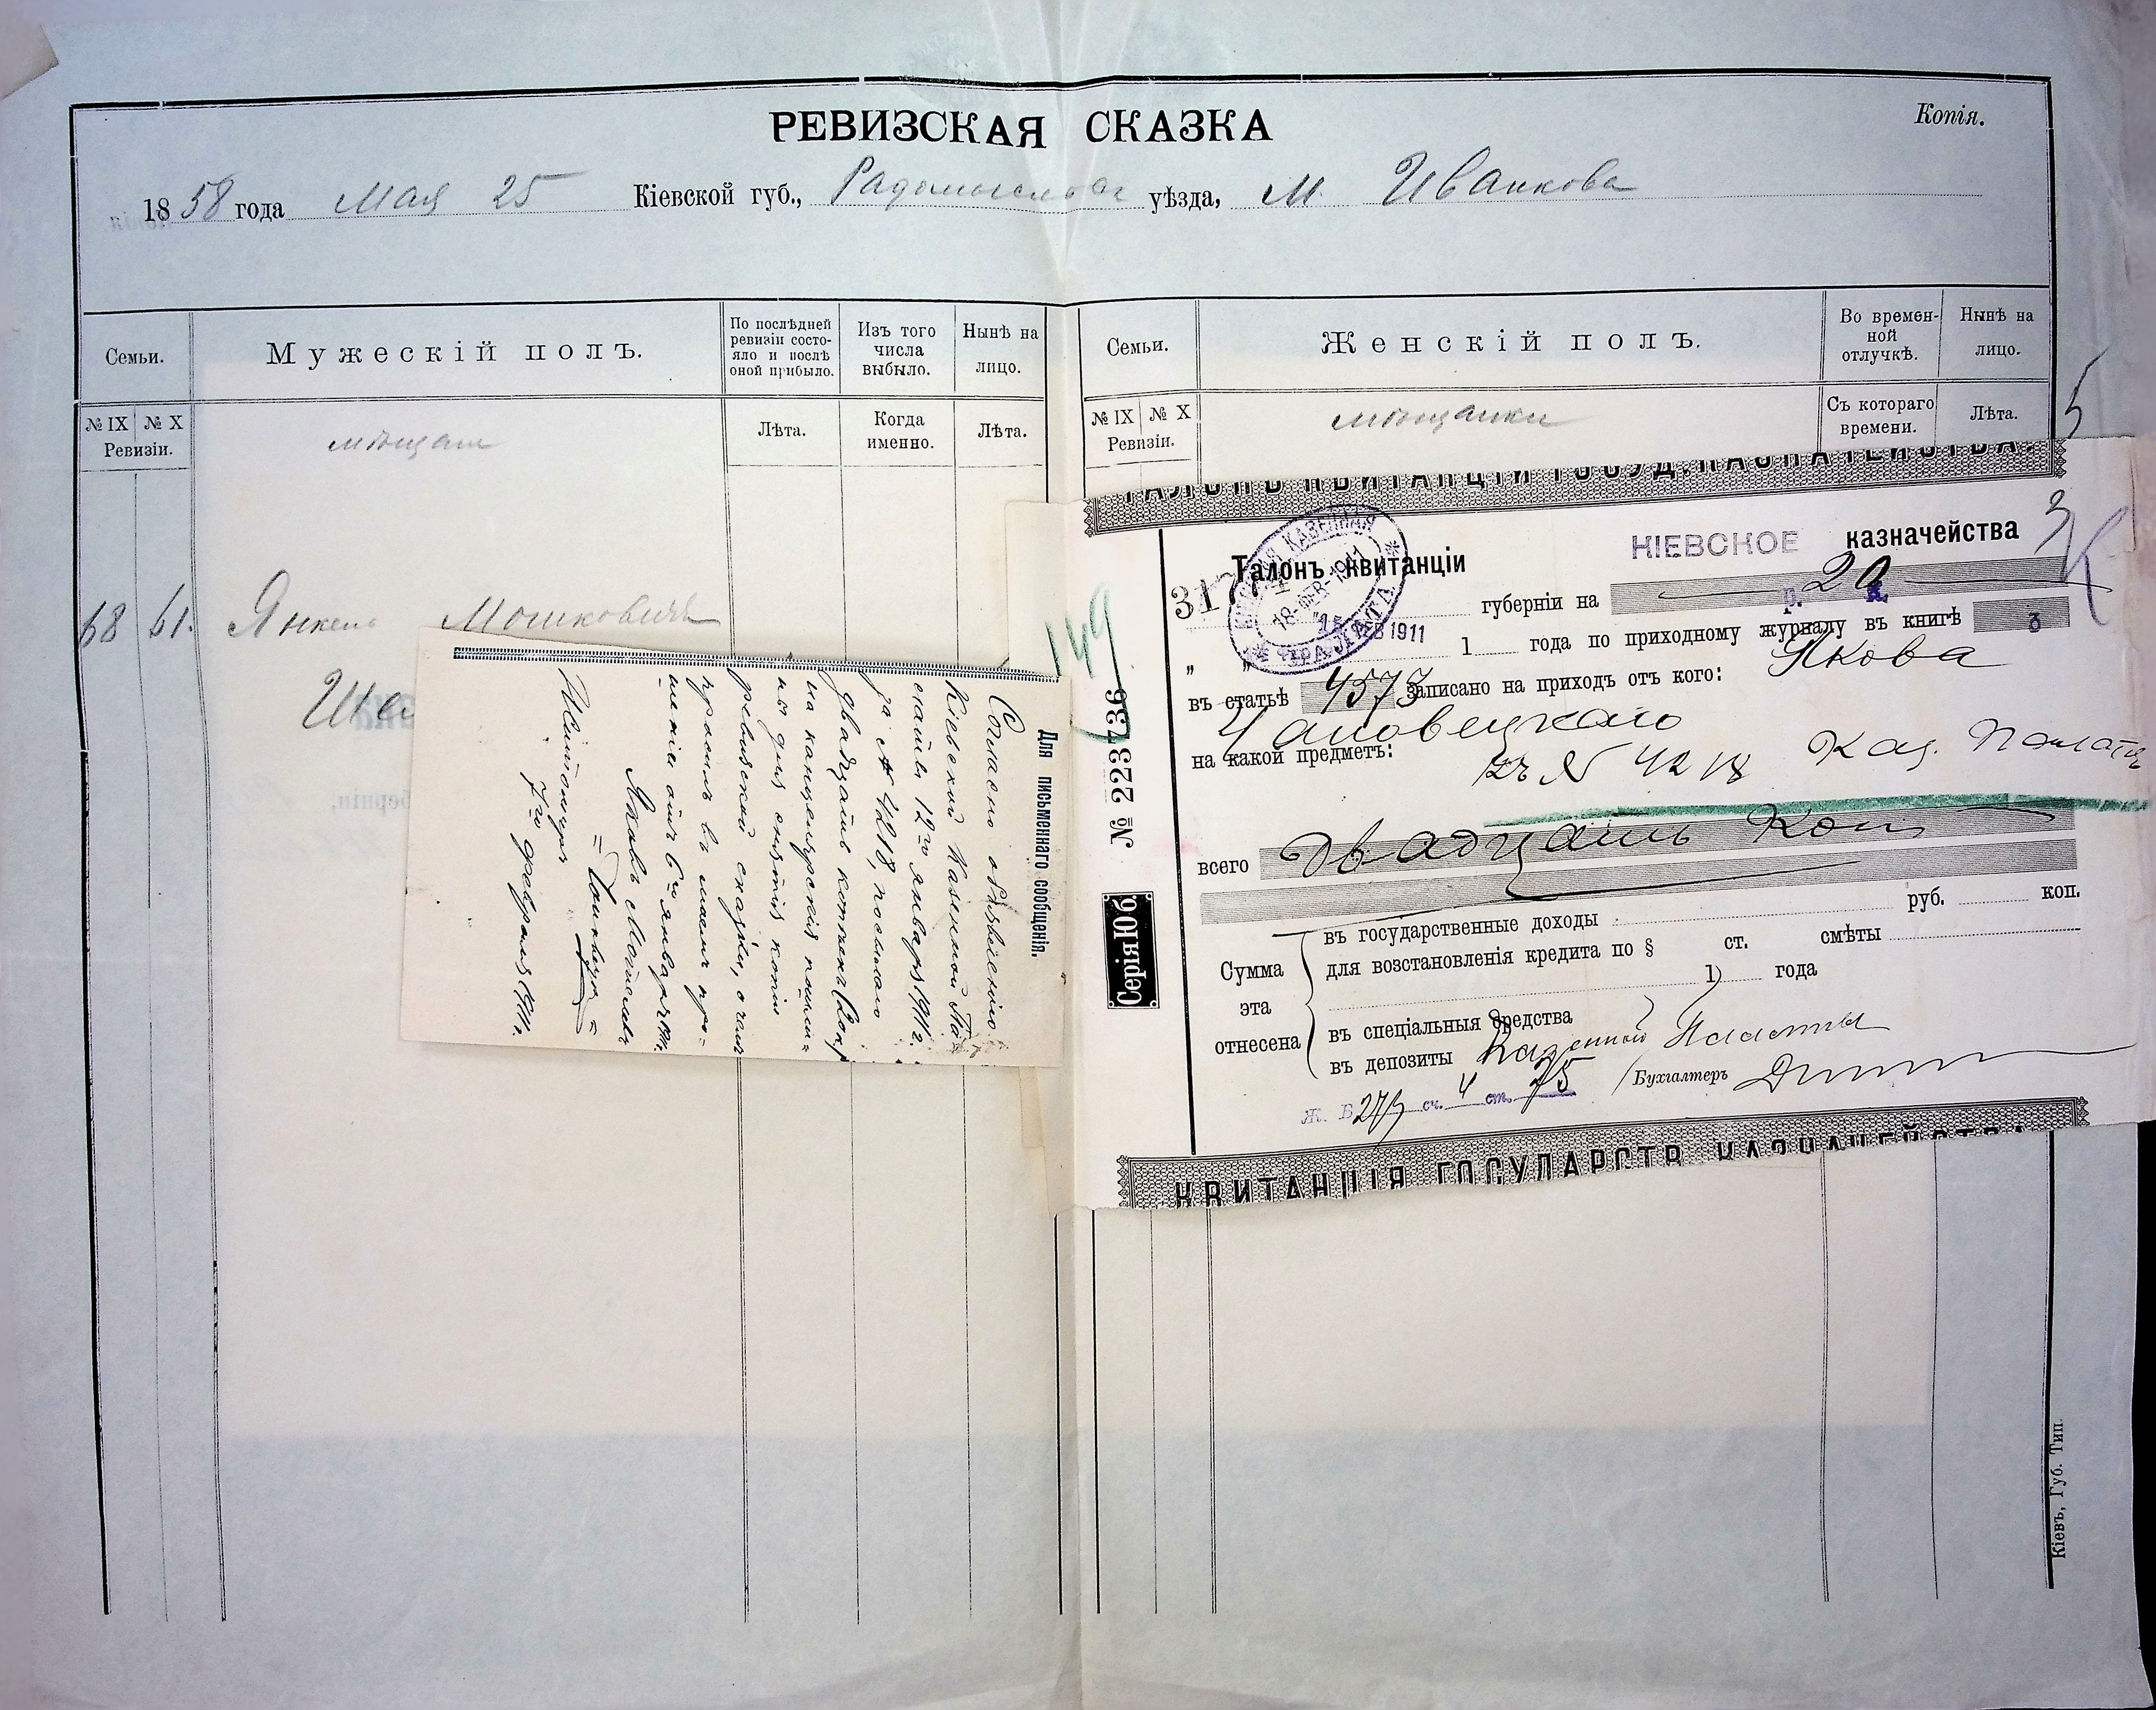 РЕВИЗСКАЯ СКАЗКА
Копія.
1858 года Мая 25 Кіевской губ., Радомысльск уѣзда, М. Иванкова
Семьи.
Мужескій полъ.
По послѣдней ревизіи состо-
яло и послѣ
оной прибыло.
Изъ того
числа
выбыло.
Нынѣ на
лицо.
№ IX № X
Ревизіи.
мѣщане
Лѣта.
Когда
именно.
Лѣта.
68 61. Янкель Мошковичъ
Ша
Семьи.
Женскій полъ.
Во времен-
ной
отлучкѣ.
Нынѣ на
лицо.
№ IX № X
Ревизіи.
мѣщанки
Съ котораго
времени.
Лѣта.
5
Для письменнаго сообщенія.
Согласно объявленію
Кіевской Казенной Па-
латы 12го января 1911 г.
за № 4218, посылаю
двадцать копѣекъ
на канцелярскія пошли-
ны для снятія копіи
ревизской сказки, о чемъ
просилъ въ моемъ про-
шеніи отъ 6го января 1911.
Яковъ
Житомиръ
7го февраля 1911 г.
149
ТАЛОНЪ КВИТАНЦІИ ГОСУД. КАЗНАЧЕЙСТВА.
Талонъ квитанціи КІЕВСКОЕ казначейства
3
317
КАЗЕННАЯ
18-ФЕВ-1911
ПАЛАТА
губерніи на 20
р. к.
15 ФЕВ 1911
1 года по приходному журналу въ книгѣ 3
въ статьѣ 4573 записано на приходъ отъ кого: Якова
Чановецкаго
на какой предметъ: къ № 4218 Каз. Палаты
всего Двадцать Коп
Сумма
эта
отнесена
въ государственные доходы руб. коп.
для возстановленія кредита по § ст. смѣты
1 года
въ спеціальныя средства
въ депозиты Казенной Палаты
Ж. Б 273 сч. 4 ст. 75
Бухгалтеръ
№ 223736
Серія Юб
КВИТАНЦІЯ ГОСУДАРСТВ. КАЗНАЧЕЙСТВА
Кіевъ, Губ. Тип.